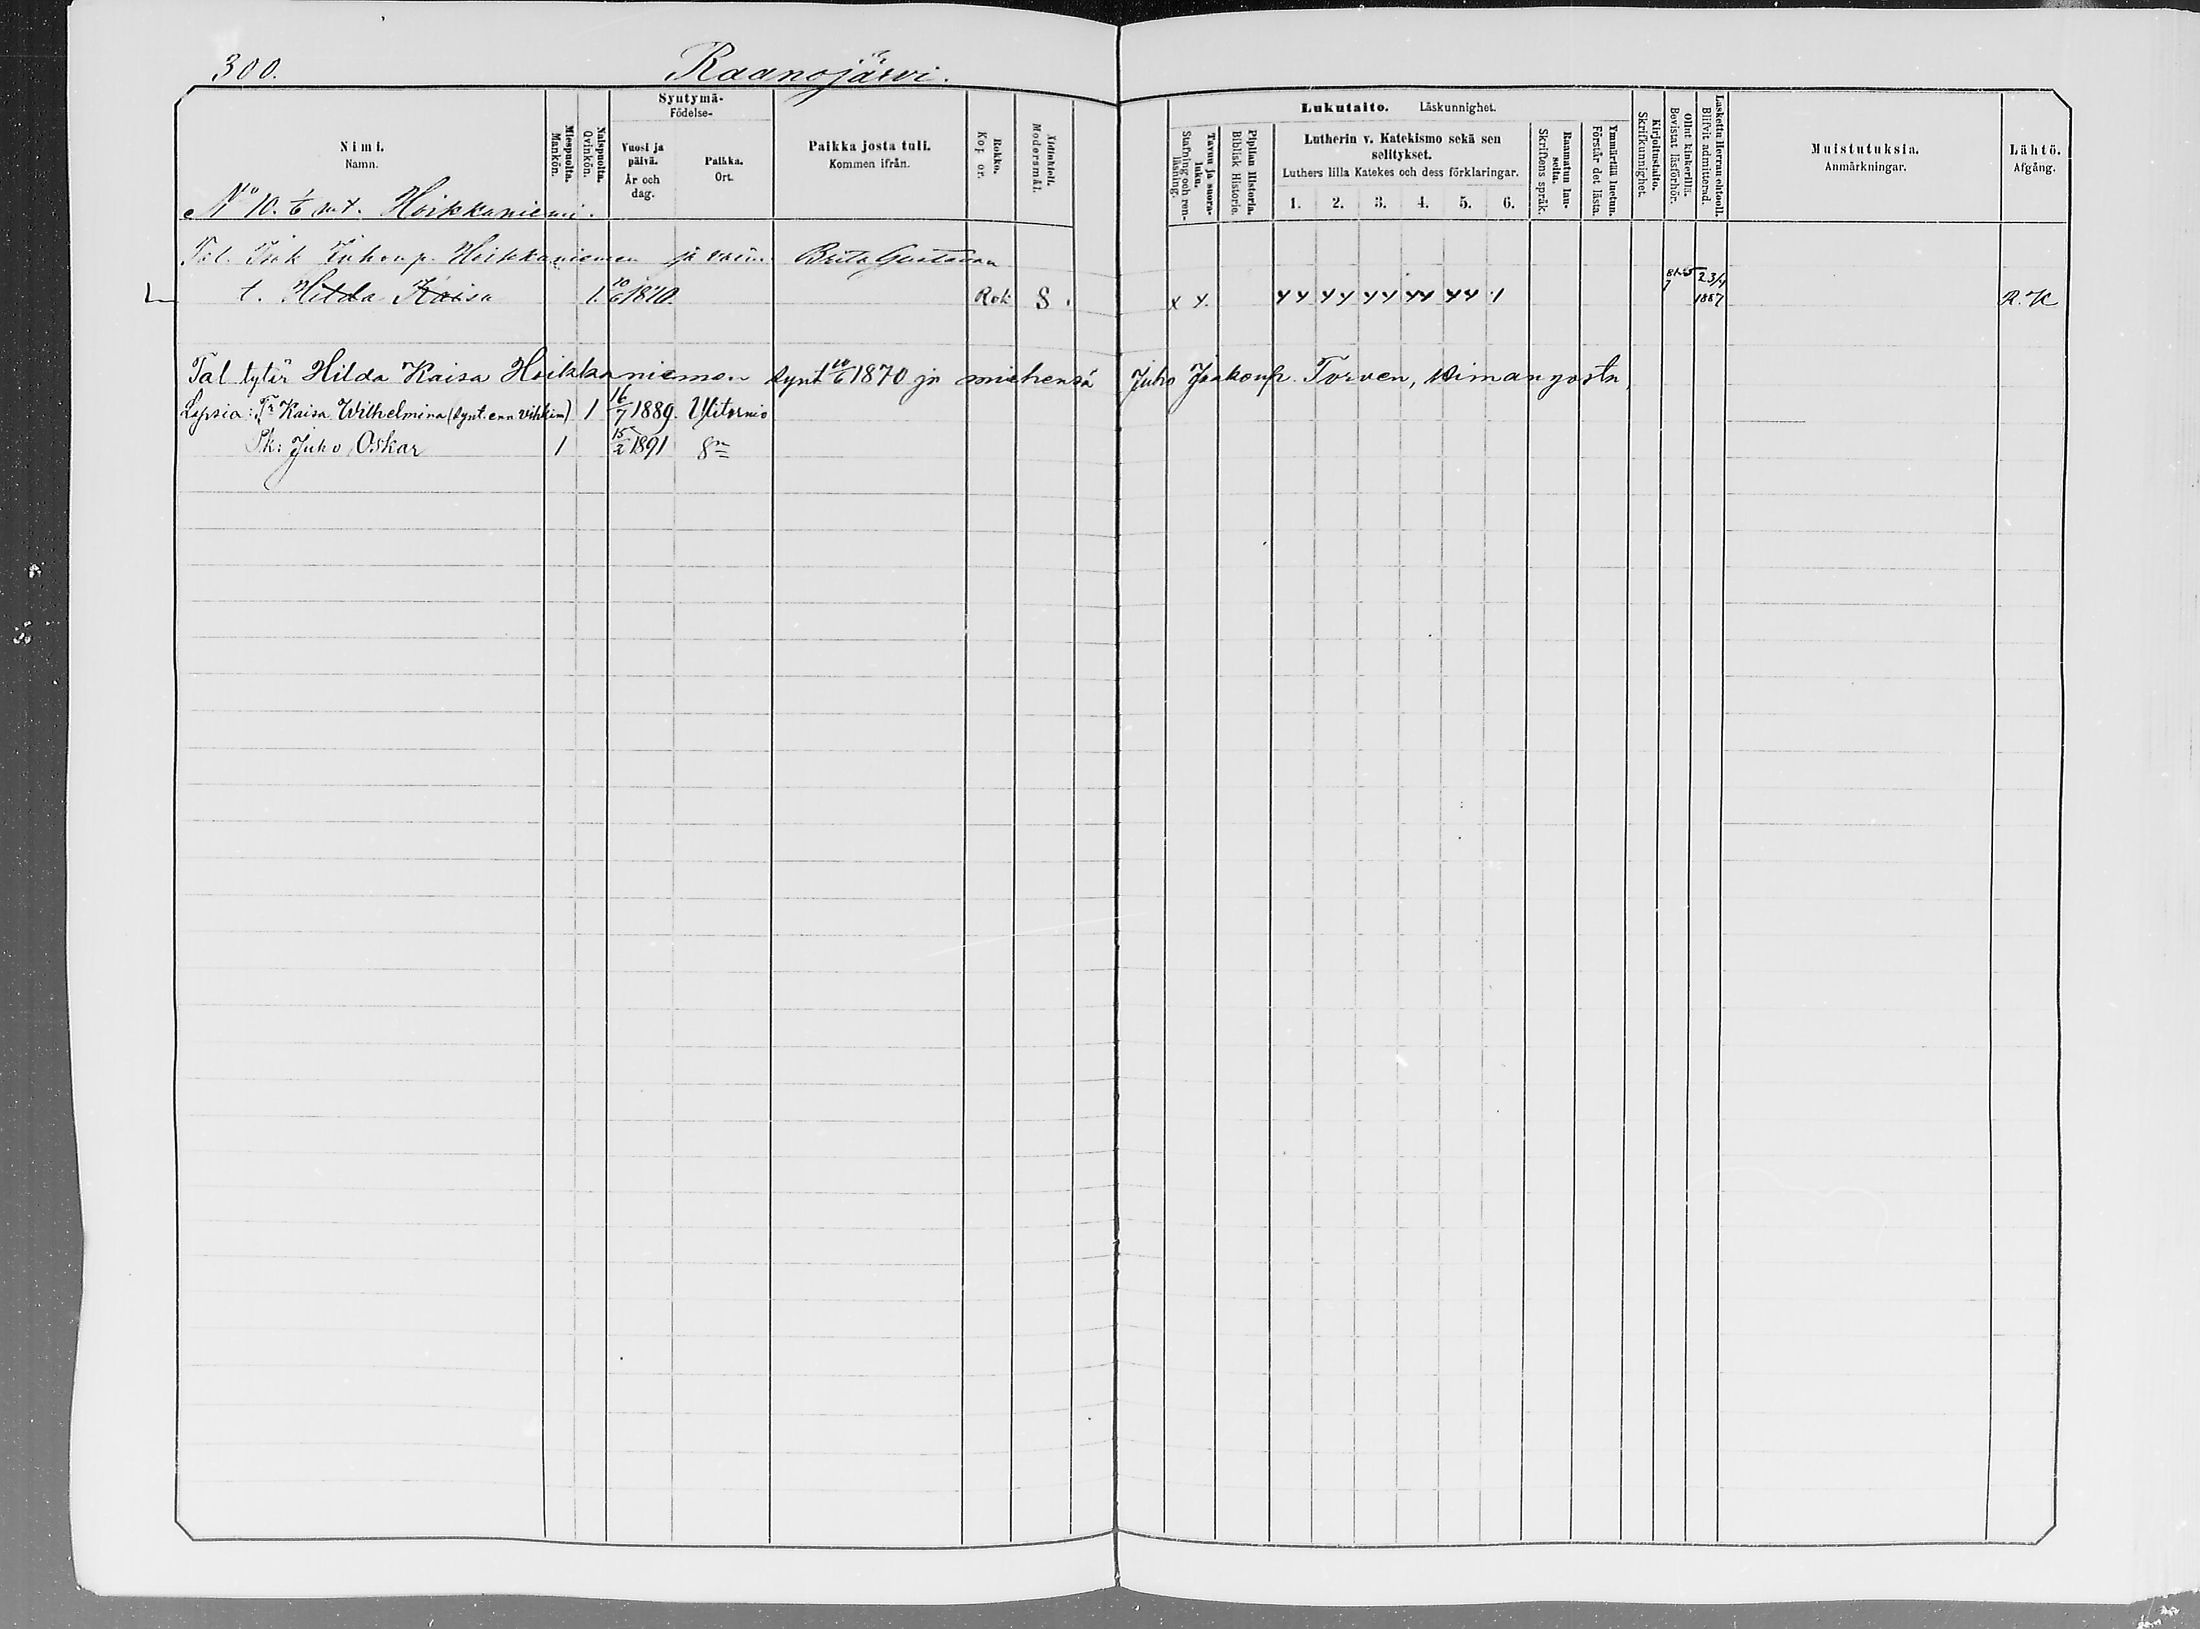 300.
Raanojärvi.
Nimi.
Namn.
Miespuolta.
Mankön.
Naispuolta.
Qvinkön.
Syntymä-
Födelse-
Vuosi ja
päivä.
År och
dag.
Paikka.
Ort.
Paikka josta tuli.
Kommen ifrån.
Rokko.
Kop or.
Äidinkieli.
Modersmål.
Lukutaito. Läskunnighet.
Tavuu ja suora-
luku.
Stafning och ren-
läsning.
Piplian Historia.
Biblisk Historie.
Lutherin v. Katekismo sekä sen
selitykset.
Luthers lilla Katekes och dess förklaringar.
1. 2. 3. 4. 5. 6.
Raamatun lau-
seita.
Skriftens språk.
Ymmärtää luetun.
Förstår det lästa.
Kirjoitustaito.
Skrifkunnighet.
Ollut kinkerillä.
Bevistat läsförhör.
Laskettu Herran ehtooll.
Blifvit admitterad.
Muistutuksia.
Anmärkningar.
Lähtö.
Afgång.
No 10. 1/6 mt. Heikkaniemi.
Tal. Isak Juhonp. Heikkaniemen ja vaim. Brita Gustavan
t. Hilda Kaisa 1. 10/6 1870. Rok S. x x. 81-85 7 23/4 1887 R. K
Tal tytär Hilda Kaisa Heikkaniemen synt 10/6 1870 ja miehensä Juho Jaakonp. Torven,
Lapsia: Tr Kaisa Wilhelmina (synt. enn vihkim) 1 16/7 1889. Ylitornio
Pk: Juho Oskar 1 15/2 1891 Sn